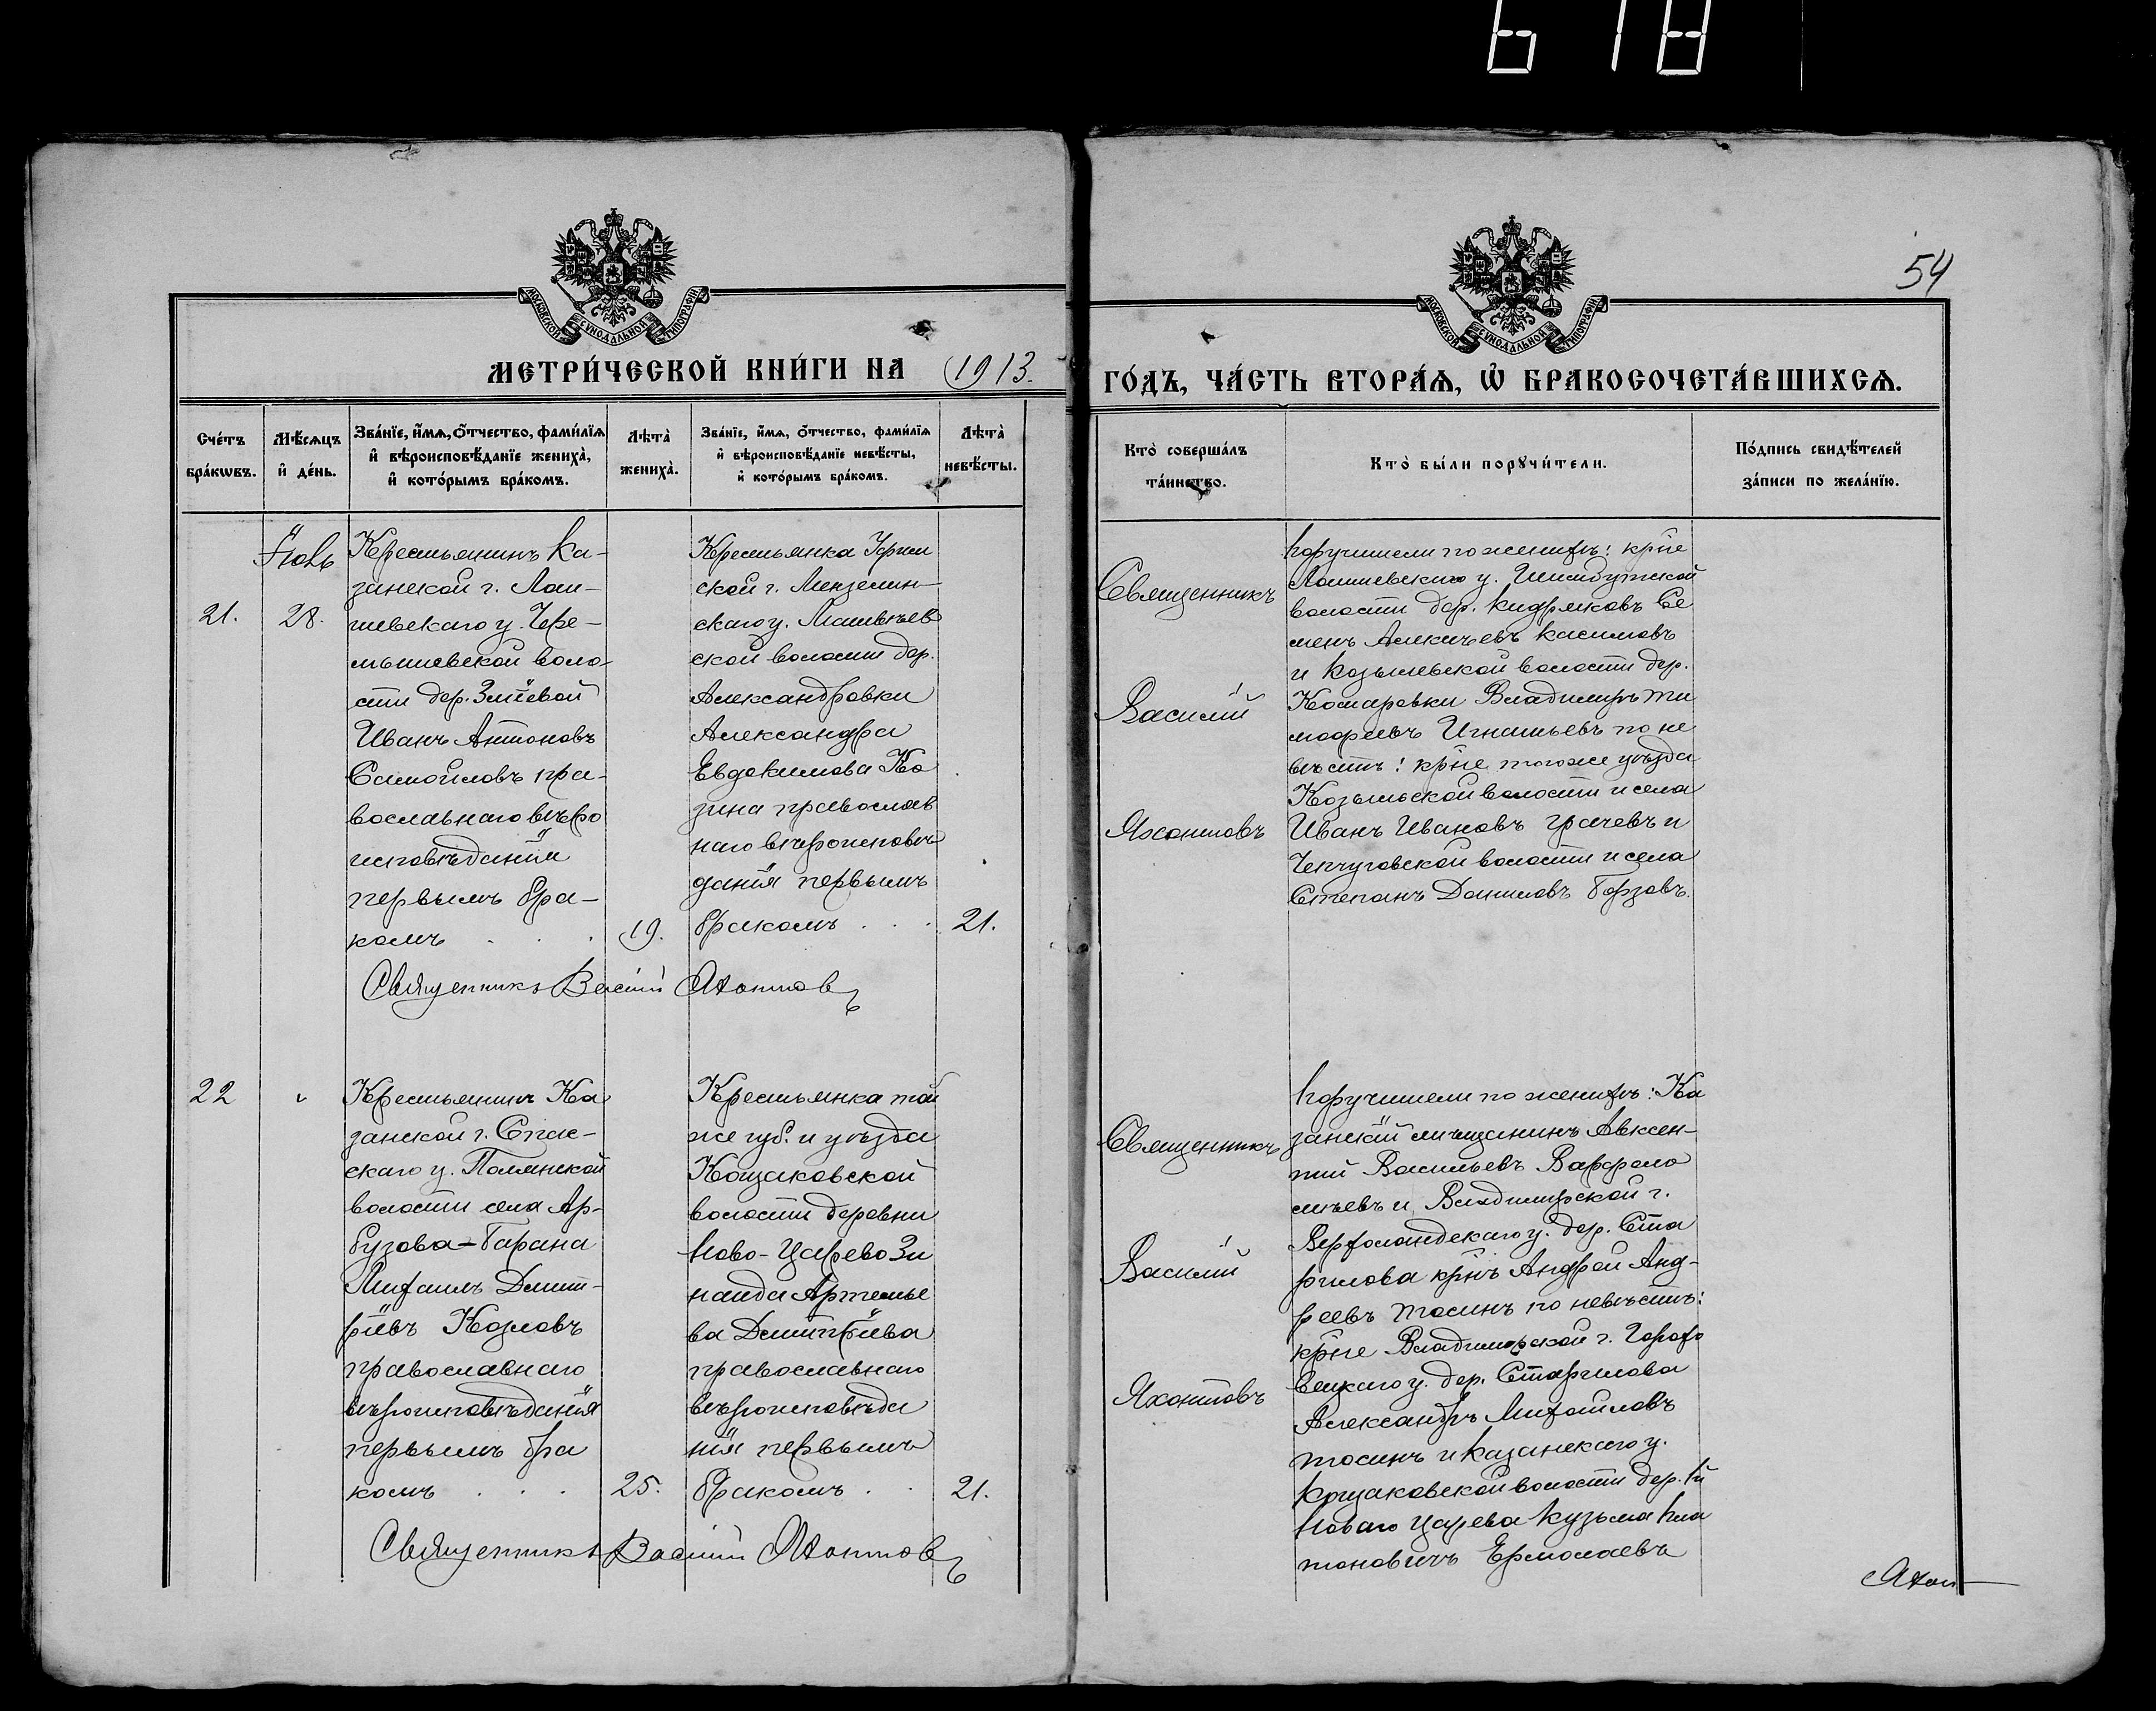 618
54
МОСКОВСКОЙ СѴНОДАЛЬНОЙ ТИПОГРАФІИ
МОСКОВСКОЙ СѴНОДАЛЬНОЙ ТИПОГРАФІИ
МЕТРИ́ЧЕСКОЙ КНИ́ГИ НА 1913.
ГО́ДЪ, ЧА́СТЬ ВТОРА́Ѧ, Ѽ БРАКОСОЧЕТА́ВШИХСѦ.
Сче́тъ
бра́кѡвъ.
Мѣ́сѧцъ
и҆ де́нь.
Зва́нїе, и҆́мѧ, ѻ҆́тчество, фами́лїѧ
и҆ вѣроисповѣ́данїе жениха̀,
и҆ кото́рымъ бра́комъ.
Лѣта̀
жениха̀.
Зва́нїе, и҆́мѧ, ѻ҆́тчество, фами́лїѧ
и҆ вѣроисповѣ́данїе невѣ́сты,
и҆ кото́рымъ бра́комъ.
Лѣта̀
невѣ́сты.
Кто̀ соверша́лъ
та́инство.
Кто̀ бы́ли порꙋчи́тели.
По́дпись свидѣ́телей
за́писи по жела́нїю.
21.
28.
Крестьянинъ Ка-
занской г. Лаи-
шевскаго у. Чере-
мышевской воло-
сти дер. Зміевой
Иванъ Антоновъ
Самойловъ пра-
вославнаго вѣро
исповѣданія
первымъ бра-
комъ . . .
19.
Крестьянка Уфим
ской г. Мензелин-
скаго у.
ской волости дер.
Александровки
Александра
Евдокимова Ко
зина православ
наго вѣроисповѣ
данія первымъ
бракомъ . . .
21.
Священникъ Василій Яхонтовъ
Священникъ
Василій
Яхонтовъ
Поручители по женихѣ: крн̃е
Лаишевскаго у.
волости дер. Кидряковъ Се
менъ Алексѣевъ Касимовъ
и Козыльской волости дер.
Комаровки Владимиръ Ти
мофеевъ Игнатьевъ по не
вѣстѣ: крн̃е того же уѣзда
Козыльской волости и села
Иванъ Ивановъ Грачевъ и
Чепчуговской волости и села
Степанъ Даниловъ Борзовъ.
22
Крестьянинъ Ка
занской г. Спас-
скаго у. Полянской
волости села Ар-
бузова-Барана
Михаилъ Дмит-
ріевъ Козловъ
православнаго
вѣроисповѣданія
первымъ бра
комъ . . .
25.
Крестьянка той
же губ. и уѣзда
Кощаковской
волости деревни
Ново-Царево Зи
наида Артемье
ва Дмитріева
православнаго
вѣроисповѣда
нія первымъ
бракомъ . .
21.
Священникъ Василій Яхонтовъ
Священникъ
Василій
Яхонтовъ
Поручители по женихѣ: Ка
занскій мѣщанинъ Авксен-
тий Васильевъ Варфоло
мѣевъ и Владимирской г.
у. дер. Ста
рилова крн̃ъ Андрей Анд-
реевъ Тосинъ по невѣстѣ:
крн̃е Владимирской г. Горохо
вецкаго у. дер. Старилова
Александръ Михайловъ
Тосинъ и Казанскаго у.
Кощаковской волости дер.
Новаго Царева Кузьма Пла
тоновичъ Ермолаевъ